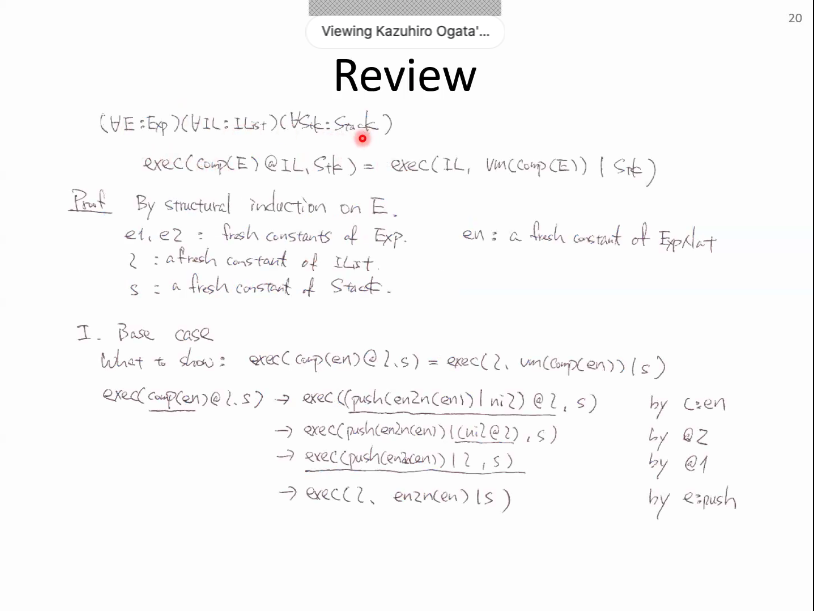 20
Viewing Kazuhiro Ogata'...
Review
(∀E:Exp)(∀IL:IList)(∀Stk:Stack)
exec(comp(E)@IL, Stk) = exec(IL, vm(comp(E)) | Stk)
Proof By structural induction on E.
e1, e2 : fresh constants of Exp. en : a fresh constant of ExpNat
l : a fresh constant of IList.
s : a fresh constant of Stack.
I. Base case
What to show: exec(comp(en)@l, s) = exec(l, vm(comp(en)) | s)
exec(comp(en)@l, s) → exec((push(en2n(en)) | nil)@l, s) by c:en
→ exec(push(en2n(en)) | (nil@l), s) by @2
→ exec(push(en2n(en)) | l, s) by @1
→ exec(l, en2n(en) | s) by e:push